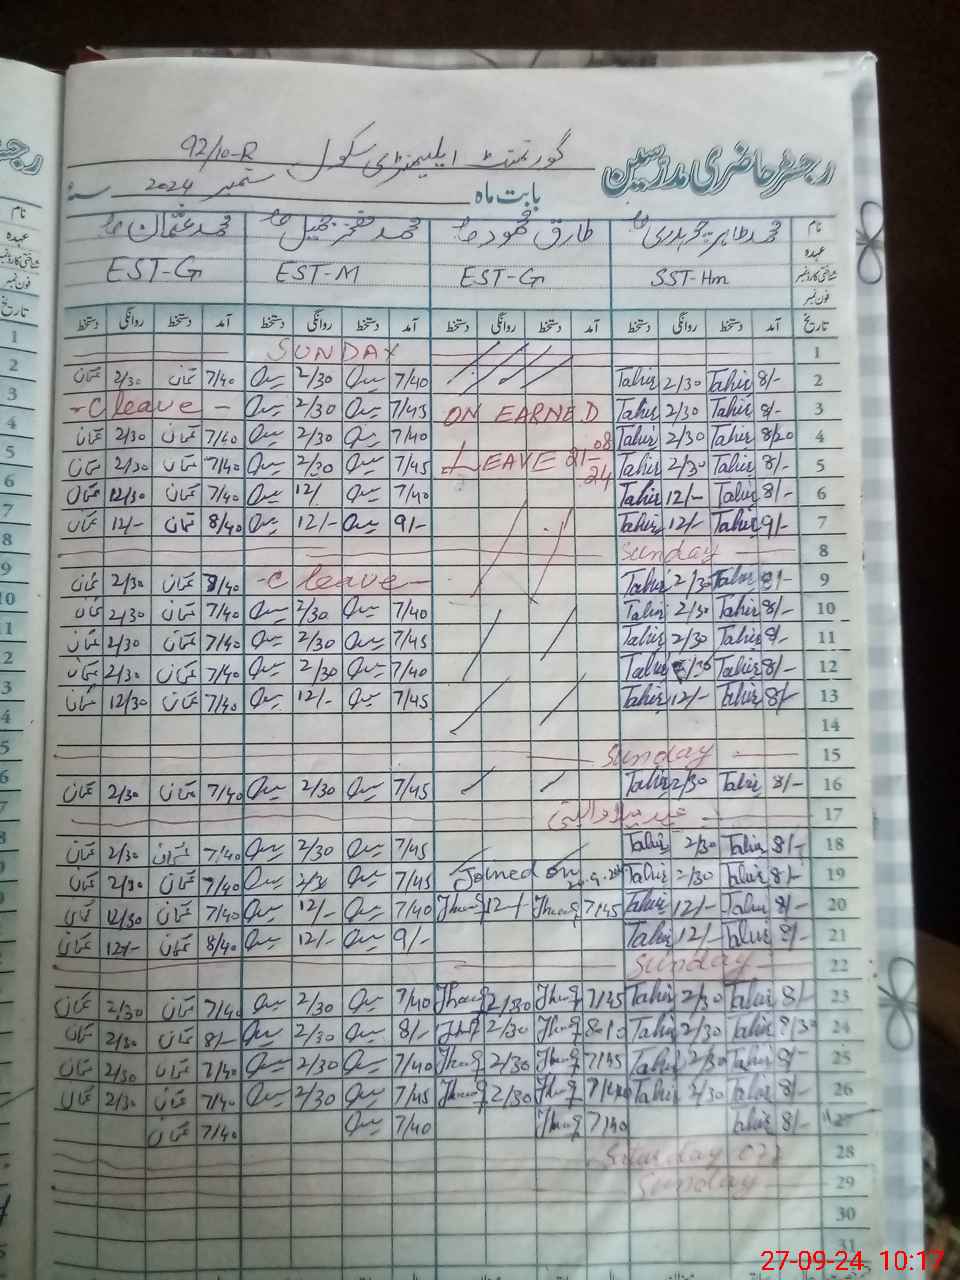 رجسٹر حاضری مدرسین گورنمنٹ ایلیمنٹری سکول 92/10-R
بابت ماہ ستمبر 2024 سنہ
نام محمد طاہر چوہدری طارق محمود محمد عثمان
عہدہ SST-Hm EST-G EST-M EST-G
شناختی کارڈ نمبر
فون نمبر
تاریخ آمد دستخط روانگی دستخط آمد دستخط روانگی دستخط آمد دستخط روانگی دستخط آمد دستخط روانگی دستخط
1 SUNDAY
2 8/- Tahir 2/30 Tahir 7/40 2/30 7/40 عثمان 2/30 عثمان
3 8/- Tahir 2/30 Tahir ON EARNED 7/45 2/30 -C leave -
4 8/20 Tahir 2/30 Tahir 7/40 2/30 7/40 عثمان 2/30 عثمان
5 8/- Tahir 2/30 Tahir LEAVE 21-08-24 7/45 2/30 7/40 عثمان 2/30 عثمان
6 8/- Tahir 12/- Tahir 7/40 12/ 7/40 عثمان 12/30 عثمان
7 9/- Tahir 12/- Tahir 9/- 12/- 8/40 عثمان 12/- عثمان
8 Sunday
9 8/- Tahir 2/30 Tahir -C leave- 7/40 عثمان 2/30 عثمان
10 8/- Tahir 2/30 Tahir 7/40 2/30 7/40 عثمان 2/30 عثمان
11 8/- Tahir 2/30 Tahir 7/45 2/30 7/40 عثمان 2/30 عثمان
12 8/- Tahir Tahir 7/40 2/30 7/40 عثمان 2/30 عثمان
13 8/- Tahir 12/- Tahir 7/45 12/- 7/40 عثمان 12/30 عثمان
14
15 Sunday
16 8/- Tahir 2/30 Tahir 7/45 2/30 7/40 عثمان 2/30 عثمان
17 عید میلاد النبی
18 8/- Tahir 2/30 Tahir 7/45 2/30 7/40 عثمان 2/30 عثمان
19 8/- Tahir 2/30 Tahir Joined on 20.9.2024 7/45 2/30 7/40 عثمان 2/30 عثمان
20 8/- Tahir 12/- Tahir 7/45 12/- 7/40 12/- 7/40 عثمان 12/30 عثمان
21 8/- Tahir 12/- Tahir 9/- 12/- 8/40 عثمان 12/- عثمان
22 Sunday
23 8/- Tahir 2/30 Tahir 7/45 2/30 7/40 2/30 7/40 عثمان 2/30 عثمان
24 8/30 Tahir 2/30 Tahir 2/30 8/- 2/30 8/- عثمان 2/30 عثمان
25 8/- Tahir 2/30 Tahir 7/45 2/30 7/40 2/30 7/40 عثمان 2/30 عثمان
26 8/- Tahir 2/30 Tahir 7/40 2/30 7/45 2/30 7/40 عثمان 2/30 عثمان
8/- Tahir 7/40 7/40 7/40 عثمان
28 Saturday
29 Sunday
30
31
27-09-24 10:17